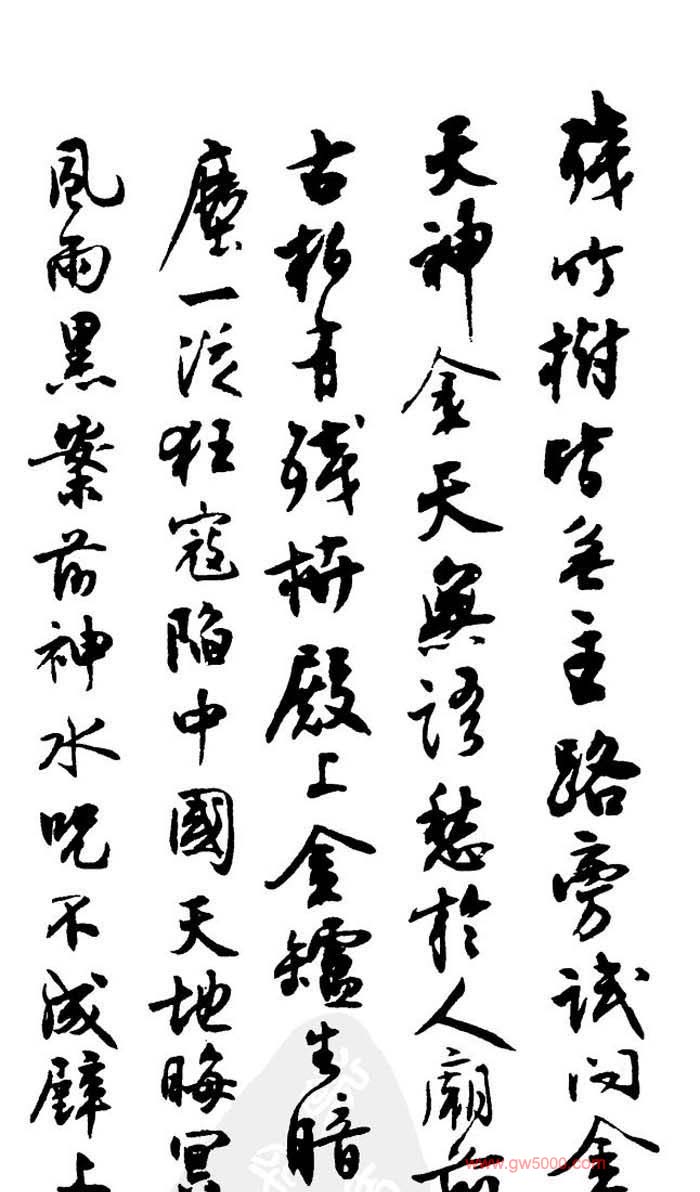 残竹樹皆無主路旁試問金
天神金天無語愁於人廟前
古柏有残枿殿上金鑪生暗
塵一從狂寇陷中國天地晦冥
風雨黑案前神水呪不成壁上
www.gw5000.com